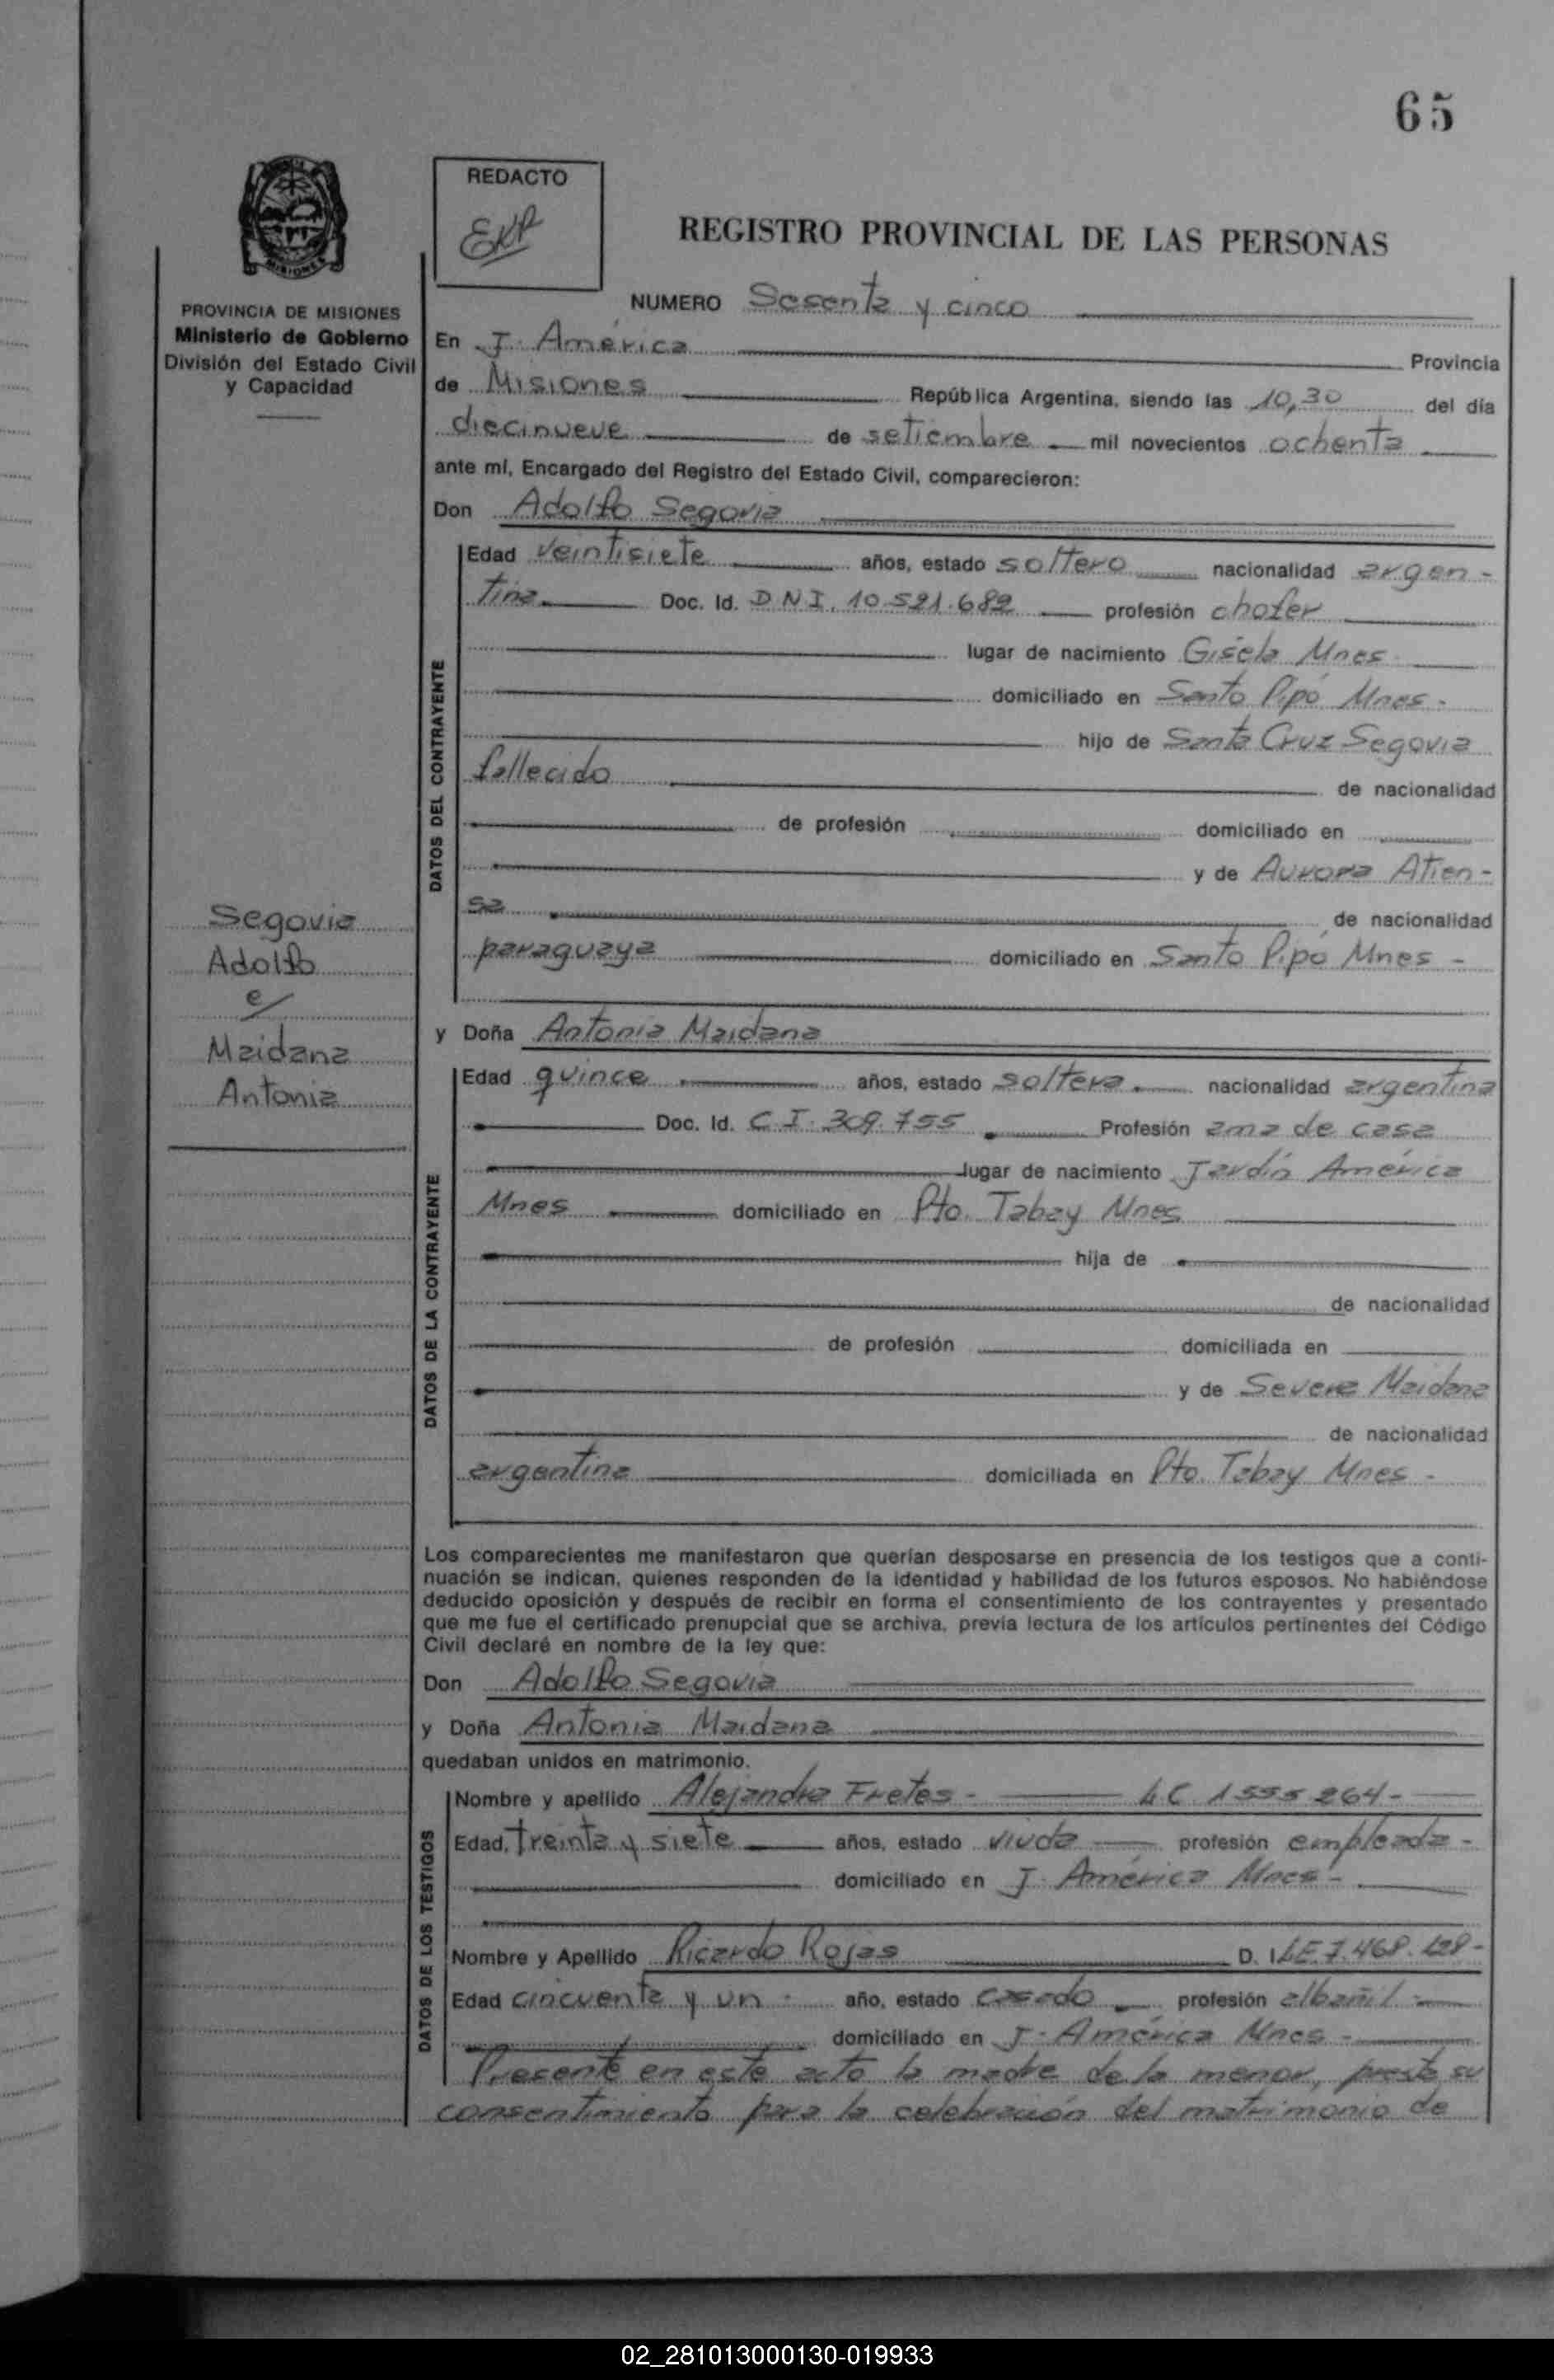 65
REDACTO
REGISTRO PROVINCIAL DE LAS PERSONAS
MISIONES
PROVINCIA DE MISIONES
Ministerio de Gobierno
División del Estado Civil
y Capacidad
Segovia
Adolfo
Maidana
Antonia
NUMERO Sesenta y cinco
En J. América Provincia
de Misiones República Argentina, siendo las 10,30 del día
diecinueve de setiembre mil novecientos ochenta
ante mí, Encargado del Registro del Estado Civil, comparecieron:
Don Adolfo Segovia
DATOS DEL CONTRAYENTE
Edad veintisiete años, estado soltero nacionalidad argen-
tina Doc. Id. DNI. 10.521.682 profesión chofer
lugar de nacimiento Gisela Mnes
domiciliado en Santo Pipó Mnes -
hijo de Santa Cruz Segovia
fallecido de nacionalidad
de profesión domiciliado en
y de Aurora Atien-
sa de nacionalidad
paraguaya domiciliado en Santo Pipó Mnes -
y Doña Antonia Maidana
DATOS DE LA CONTRAYENTE
Edad quince años, estado soltera nacionalidad argentina
Doc. Id. C I. 309.755 Profesión ama de casa
lugar de nacimiento Jardín América
Mnes domiciliado en Pto. Tabay Mnes
hija de
de nacionalidad
de profesión domiciliada en
y de Severa Maidana
de nacionalidad
argentina domiciliada en Pto. Tabay Mnes -
Los comparecientes me manifestaron que querían desposarse en presencia de los testigos que a conti-
nuación se indican, quienes responden de la identidad y habilidad de los futuros esposos. No habiéndose
deducido oposición y después de recibir en forma el consentimiento de los contrayentes y presentado
que me fue el certificado prenupcial que se archiva, previa lectura de los artículos pertinentes del Código
Civil declaré en nombre de la ley que:
Don Adolfo Segovia
y Doña Antonia Maidana
quedaban unidos en matrimonio.
DATOS DE LOS TESTIGOS
Nombre y apellido Alejandra Fretes - LC 1555264-
Edad, treinta y siete años, estado viuda profesión empleada -
domiciliado en J. América Mnes -
Nombre y Apellido Ricardo Rojas D. I LE 7.468.128-
Edad cincuenta y un - año, estado casado profesión albañil -
domiciliado en J. América Mnes -
Presente en este acto la madre de la menor, presta su
consentimiento para la celebración del matrimonio de
02_281013000130-019933